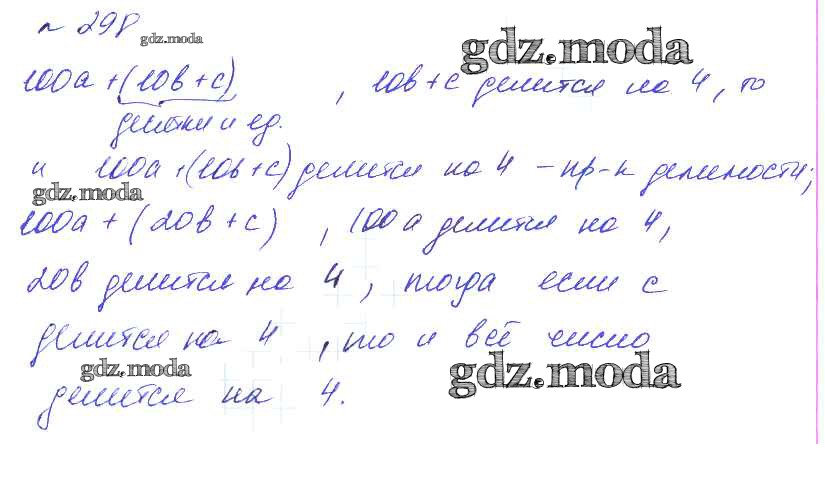 № 298
gdz.moda
gdz.moda
100a + (10b + c), 10b + c делится на 4, то
десятки и ед.
и 100a + (10b + c) делится на 4 - пр-к делимости;
gdz.moda
100a + (20b + c), 100a делится на 4,
20b делится на 4, тогда если c
делится на 4, то и всё число
gdz.moda
gdz.moda
делится на 4.